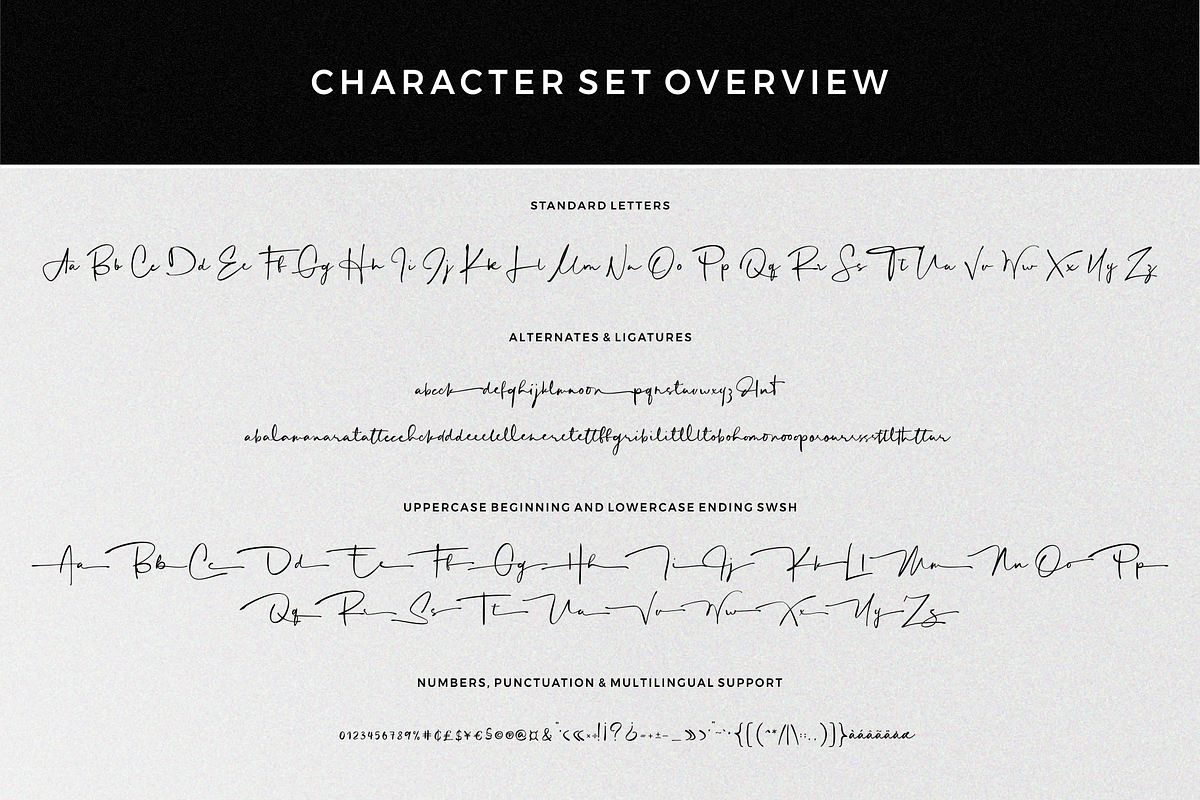 CHARACTER SET OVERVIEW
STANDARD LETTERS
Aa Bb Cc Dd Ee Ff Gg Hh Ii Jj Kk Ll Mm Nn Oo Pp Qq Rr Ss Tt Uu Vv Ww Xx Yy Zz
ALTERNATES & LIGATURES
UPPERCASE BEGINNING AND LOWERCASE ENDING SWSH
Aa Bb Cc Dd Ee Ff Gg Hh Ii Jj Kk Ll Mm Nn Oo Pp
Qq Rr Ss Tt Uu Vv Ww Xx Yy Zz
NUMBERS, PUNCTUATION & MULTILINGUAL SUPPORT
0123456789%#¢£$¥€§©®@¤&